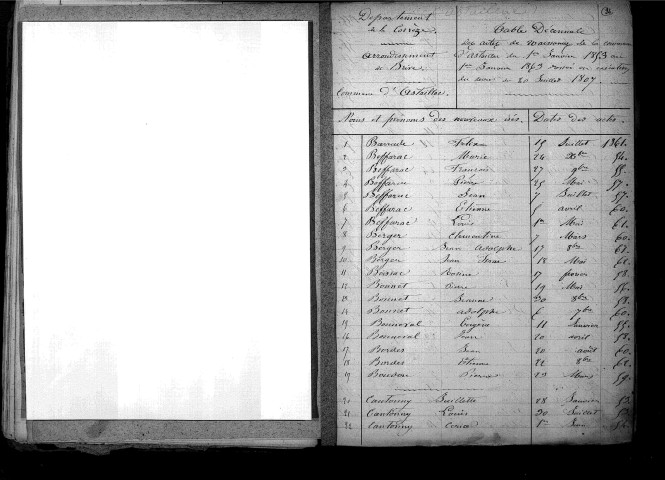 Département
de la Corrèze
Arrondissement
de Brive
Commune d'Astaillac
Table Décennale
des actes de naissances de la commune
d'Astaillac du 1er Janvier 1853 au
1er Janvier 1863 dressée en exécution
du décret du 20 Juillet 1807.
Noms et prénoms des nouveaux nés. Dates des actes.
1 15 Juillet 1861.
2 Beffarac Marie 24 Xbre 54.
3 Beffarac François 27 9bre 55.
4 Beffarac Pierre 25 Mai 57.
5 Beffarac Jean 7 Juillet 57.
6 Beffarac Etienne 5 avril 60.
7 Beffarac Louis 1er Mai 61.
8 Berger Clémentine 7 Mars 60.
9 Berger Jean Adolphe 17 8bre 61.
10 Berger Jean 18 Mai 62.
11 17 58.
12 Bonnet Pierre 19 Mai 56.
13 Bonnet Jeanne 20 8bre 58.
14 Bonnet Adolphe 6 7bre 60.
15 Bonneval Eugène 11 Janvier 55.
16 Bonneval Jean 20 avril 58.
17 Bordes Jean 20 août 60.
18 Bordes Etienne 22 8bre 62.
19 Boudou Pierre 23 Mars 59.
20 Cantonny 28 Janvier 53.
21 Cantonny Louis 20 Juillet 53.
22 Cantonny 1er 54.